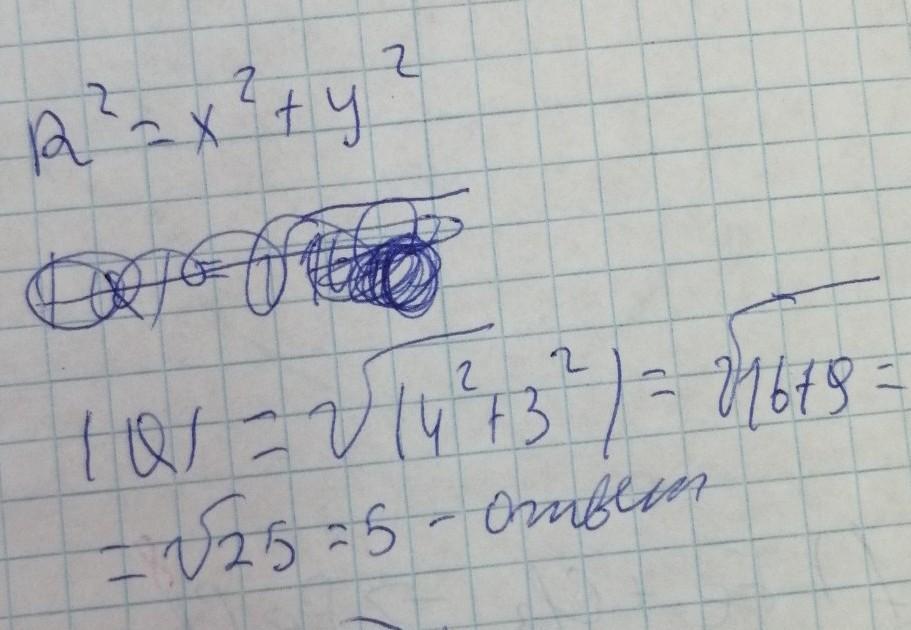 R² = x² + y²
|Q| = √(4² + 3²) = √16+9 =
= √25 = 5 - ответ